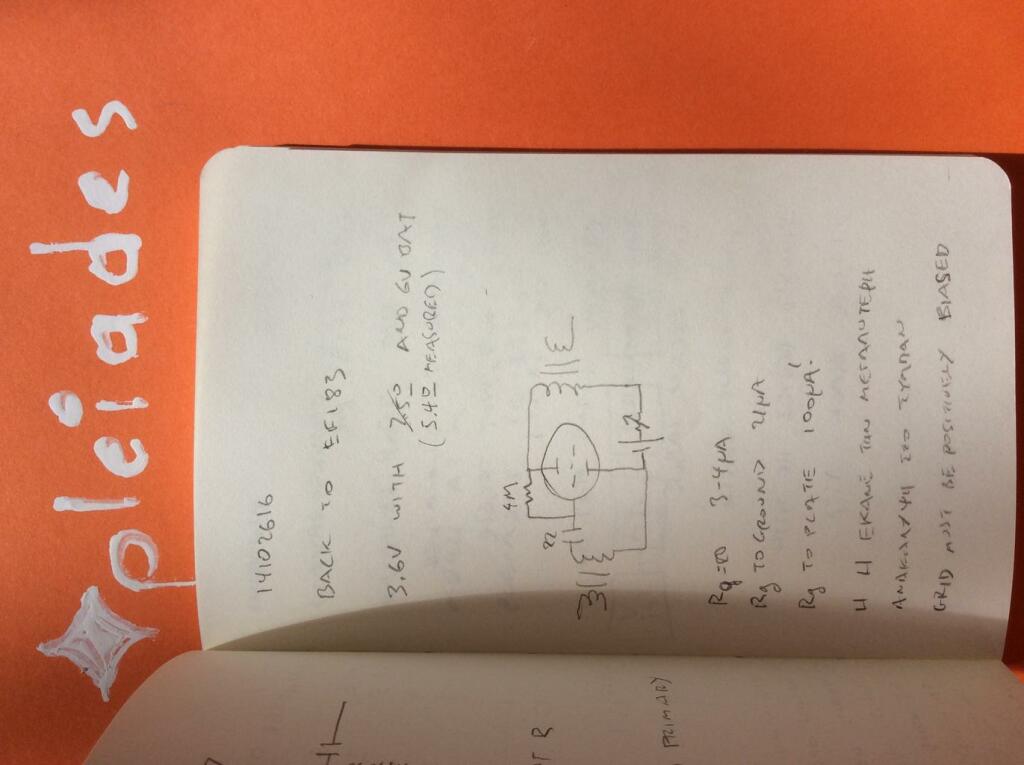 pleiades
14102616
BACK TO EF183
3.6V WITH 250 AND 6V BAT
(5.40 MEASURED)
4M
22
Rg=∞ 3-4µA
Rg TO GROUND 21µA
Rg TO PLATE 100µA!
Η Η ΕΚΑΝΕ ΤΗΝ ΜΕΓΑΛΥΤΕΡΗ
ΑΝΑΚΑΛΥΨΗ ΣΤΟ ΣΥΜΠΑΝ
GRID MUST BE POSITIVELY BIASED
PRIMARY